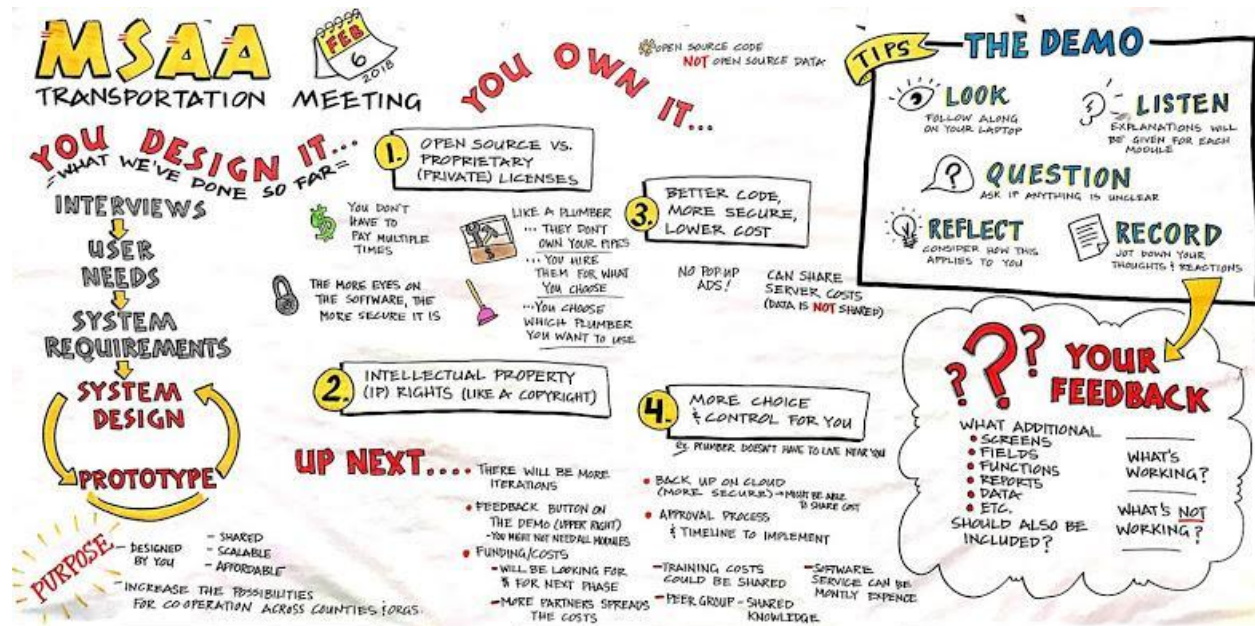 MSAA
TRANSPORTATION MEETING
FEB
6
2018
YOU DESIGN IT...
WHAT WE'VE DONE SO FAR
INTERVIEWS
USER
NEEDS
SYSTEM
REQUIREMENTS
SYSTEM
DESIGN
PROTOTYPE
PURPOSE
- DESIGNED
BY YOU
- SHARED
- SCALABLE
- AFFORDABLE
- INCREASE THE POSSIBILITIES
FOR CO OPERATION ACROSS COUNTIES & ORGS.
YOU OWN IT...
OPEN SOURCE CODE
NOT OPEN SOURCE DATA
1. OPEN SOURCE VS.
PROPRIETARY
(PRIVATE) LICENSES
$
YOU DON'T
HAVE TO
PAY MULTIPLE
TIMES
THE MORE EYES ON
THE SOFTWARE, THE
MORE SECURE IT IS
LIKE A PLUMBER
... THEY DON'T
OWN YOUR PIPES
... YOU HIRE
THEM FOR WHAT
YOU CHOOSE
... YOU CHOOSE
WHICH PLUMBER
YOU WANT TO USE
2. INTELLECTUAL PROPERTY
(IP) RIGHTS (LIKE A COPYRIGHT)
3. BETTER CODE,
MORE SECURE,
LOWER COST
NO POP UP
ADS!
CAN SHARE
SERVER COSTS
(DATA IS NOT SHARED)
4. MORE CHOICE
& CONTROL FOR YOU
ex. PLUMBER DOESN'T HAVE TO LIVE NEAR YOU
UP NEXT....
THERE WILL BE MORE
ITERATIONS
• FEEDBACK BUTTON ON
THE DEMO (UPPER RIGHT)
- YOU MIGHT NOT NEED ALL MODULES
• FUNDING/COSTS
- WILL BE LOOKING FOR
$ FOR NEXT PHASE
- MORE PARTNERS SPREADS
THE COSTS
• BACK UP ON CLOUD
(MORE SECURE) → MIGHT BE ABLE
TO SHARE COST
• APPROVAL PROCESS
& TIMELINE TO IMPLEMENT
- TRAINING COSTS
COULD BE SHARED
- PEER GROUP - SHARED
KNOWLEDGE
- SOFTWARE
SERVICE CAN BE
MONTLY EXPENCE
TIPS
THE DEMO
LOOK
FOLLOW ALONG
ON YOUR LAPTOP
LISTEN
EXPLANATIONS WILL
BE GIVEN FOR EACH
MODULE
?
QUESTION
ASK IF ANYTHING IS UNCLEAR
REFLECT
CONSIDER HOW THIS
APPLIES TO YOU
RECORD
JOT DOWN YOUR
THOUGHTS & REACTIONS
???
YOUR
FEEDBACK
WHAT ADDITIONAL
• SCREENS
• FIELDS
• FUNCTIONS
• REPORTS
• DATA
• ETC.
SHOULD ALSO BE
INCLUDED?
WHAT'S
WORKING?
WHAT'S NOT
WORKING?